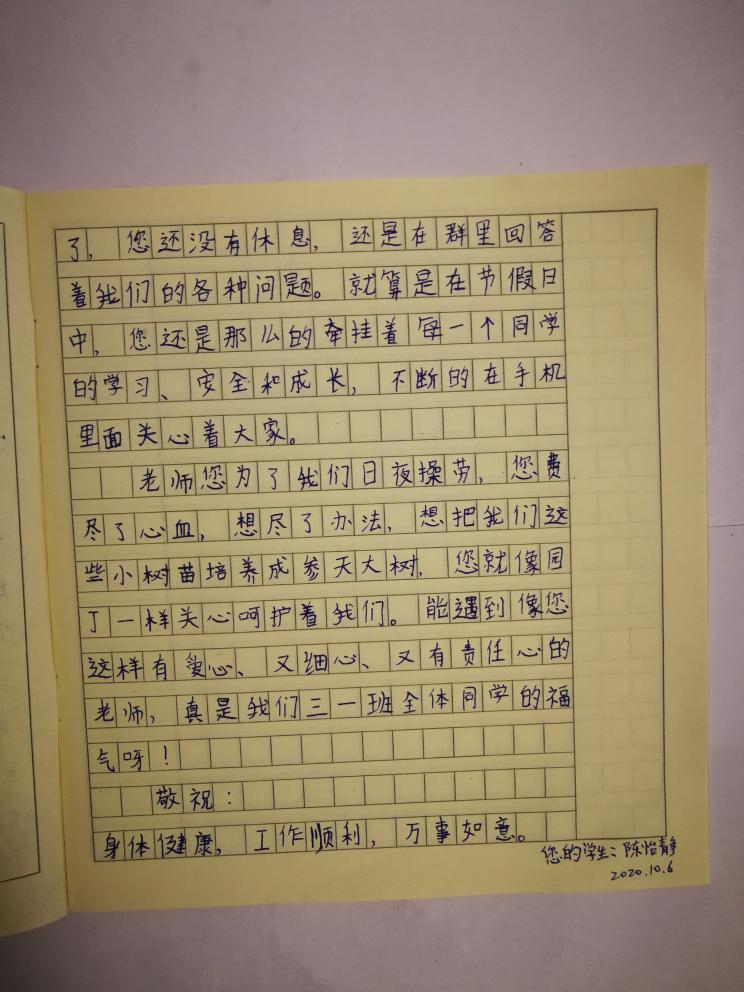 了，您还没有休息，还是在群里回答
着我们的各种问题。就算是在节假日
中，您还是那么的牵挂着每一个同学
的学习、安全和成长，不断的在手机
里面关心着大家。
老师您为了我们日夜操劳，您费
尽了心血，想尽了办法，想把我们这
些小树苗培养成参天大树，您就像园
丁一样关心呵护着我们。能遇到像您
这样有爱心、又细心、又有责任心的
老师，真是我们三一班全体同学的福
气呀！
敬祝：
身体健康，工作顺利，万事如意。
您的学生：陈怡静
2020.10.6